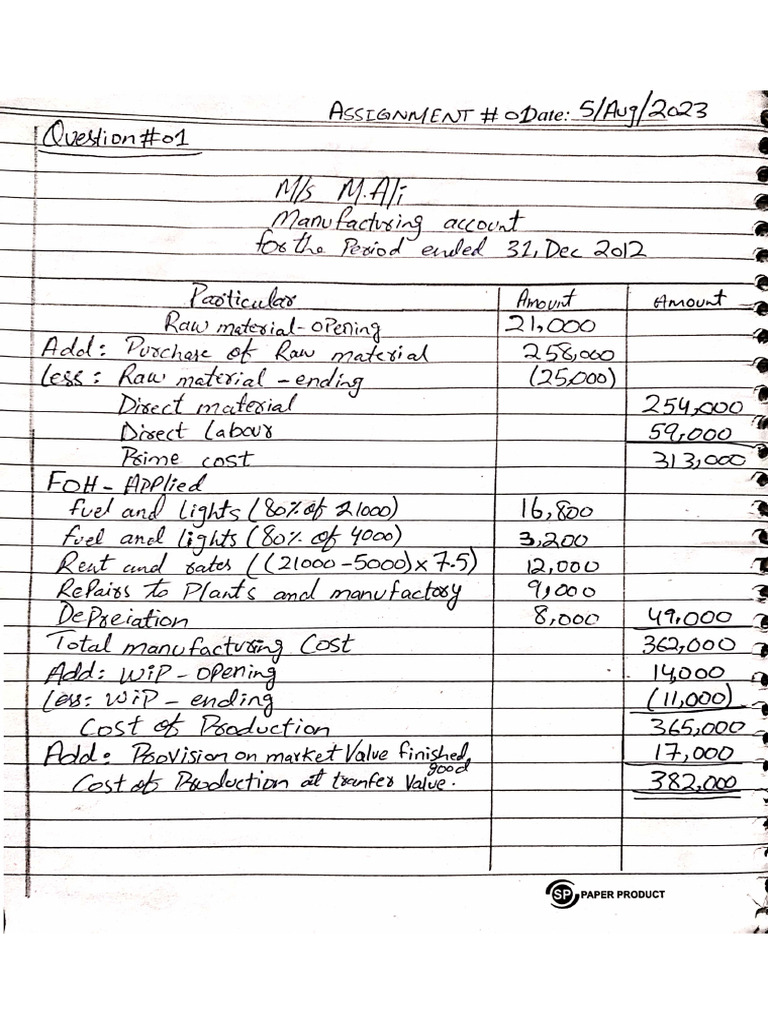 ASSIGNMENT # 0 Date: 5/Aug/2023
Question#01
M/s M.Ali
Manufacturing account
for the Period ended 31, Dec 2012
Particular Amount Amount
Raw material-opening 21,000
Add: Purchase of Raw material 258,000
Less: Raw material - ending (25,000)
Direct material 254,000
Direct Labour 59,000
Prime cost 313,000
FOH - Applied
fuel and lights (80% of 21000) 16,800
fuel and lights (80% of 4000) 3,200
Rent and rates ((21000-5000)x7.5) 12,000
Repairs to Plants and manufactory 9,000
Depreiation 8,000 49,000
Total manufacturing Cost 362,000
Add: WiP - opening 14,000
Less: WiP - ending (11,000)
Cost of Production 365,000
Add: Provision on market Value finished good 17,000
Cost of Production at tranfer Value. 382,000
SP PAPER PRODUCT